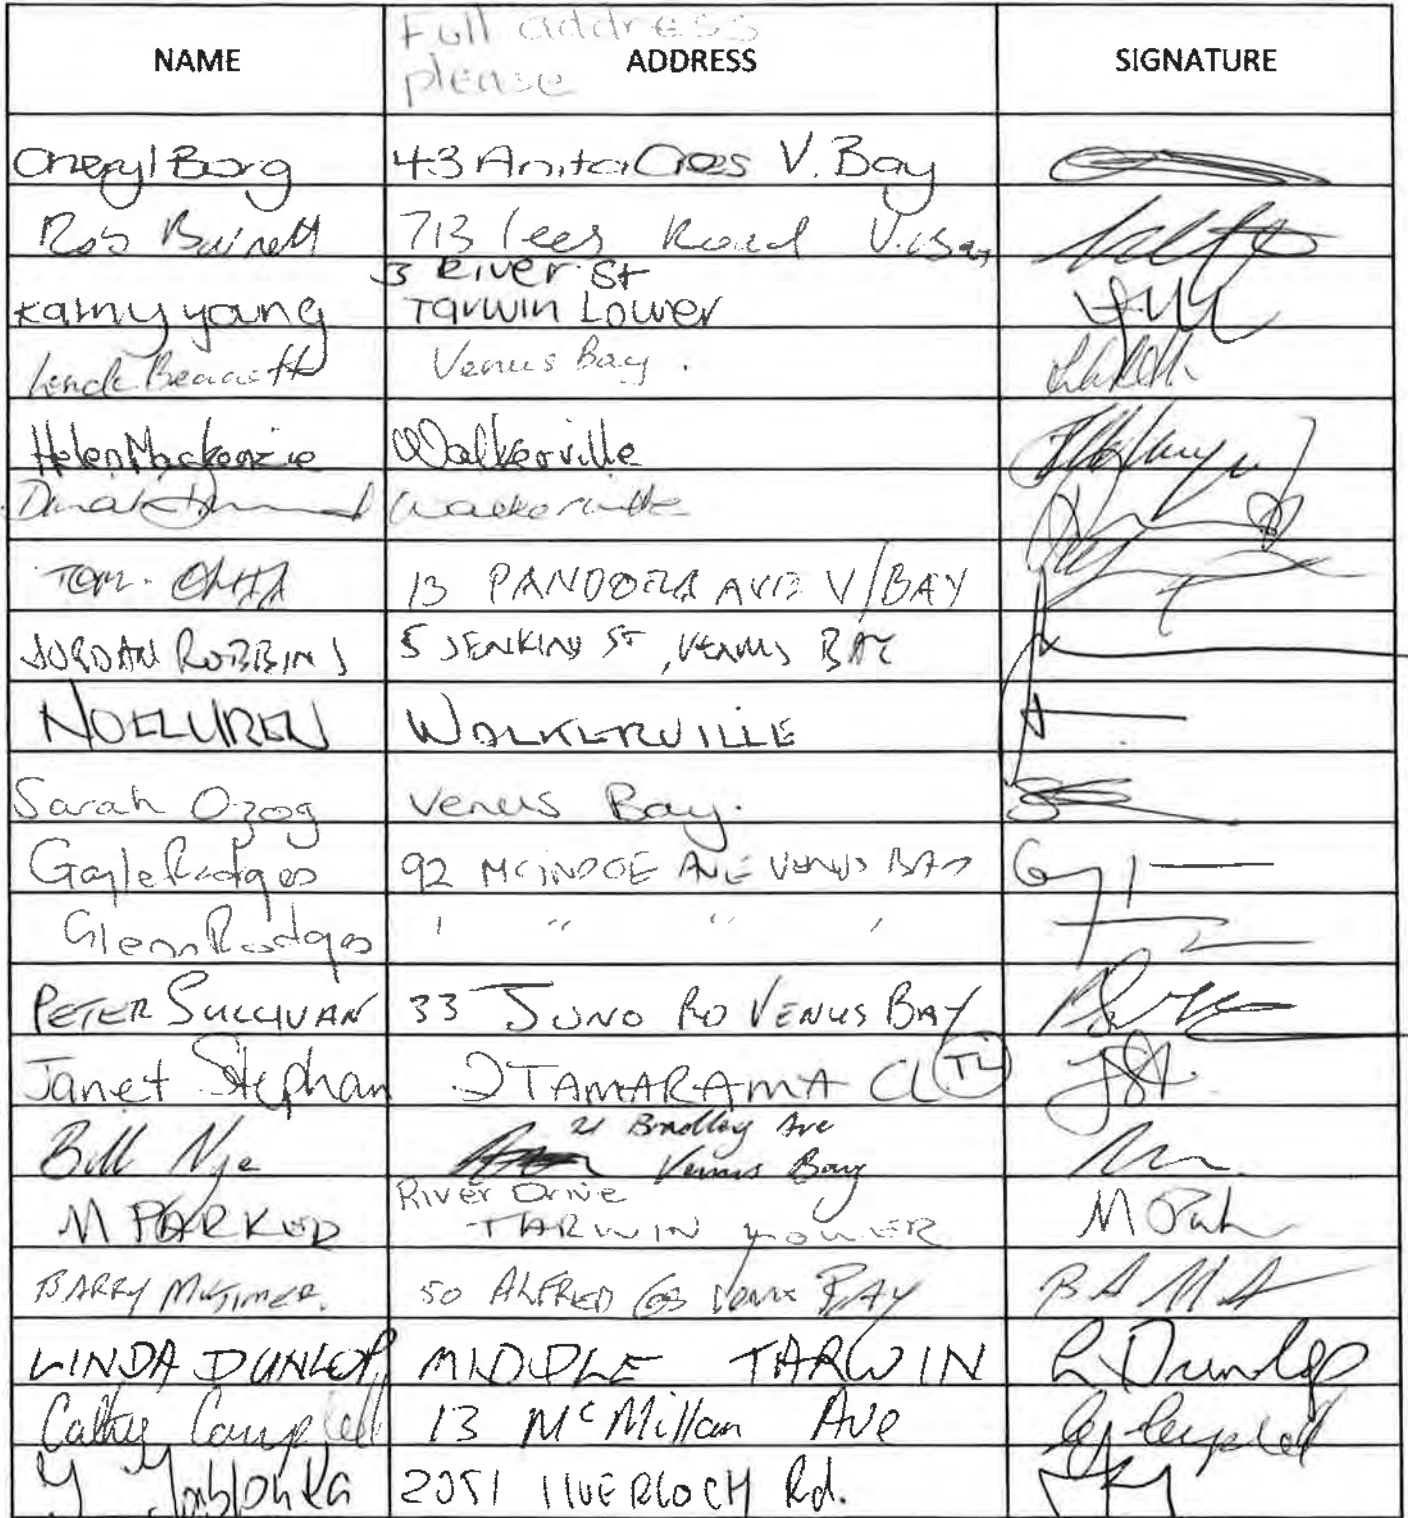 Full address
please
NAME ADDRESS SIGNATURE
Cheryl Borg 43 Anita Cres V. Bay
Rob 713 lees Road V. Bay
3 River St
Kathy young Tarwin Lower
Venus Bay.
Helen Mackenzie Walkerville
Walkerville
TOM. 13 PANDORA AVE V/BAY
JORDAN ROBBINS 5 JENKINS ST, VENUS BAY
WALKERVILLE
Sarah Ozog Venus Bay.
Gayle Rodges 92 MCINDOE AVE VENUS BAY
Glenn Rodges " " " "
PETER SULLIVAN 33 JUNO RD VENUS BAY
Janet Stephan 2 TAMARAMA CL TL
21 Bradley Ave
Bill Nye Venus Bay
River Drive
M PARKER TARWIN LOWER M
BARRY 50 ALFRED Venus BAY
LINDA DUNLOP MIDDLE TARWIN L Dunlop
Cathy Campbell 13 McMillan Ave
Y Jablonka 2051 Rd.